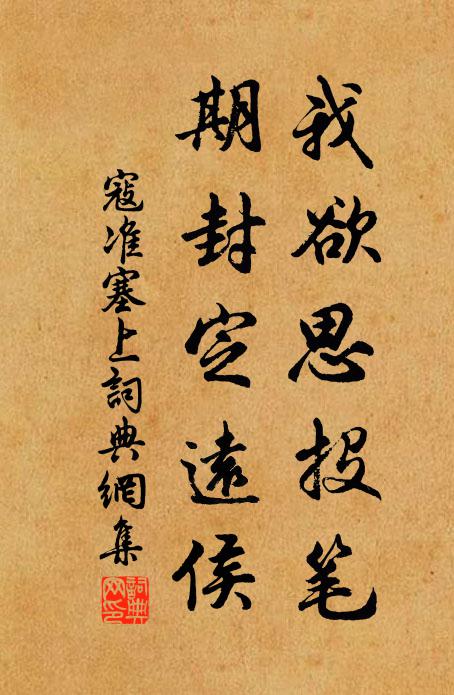 我欲思投笔
期封定遠侯
寇准塞上詞典網集
詞典网印